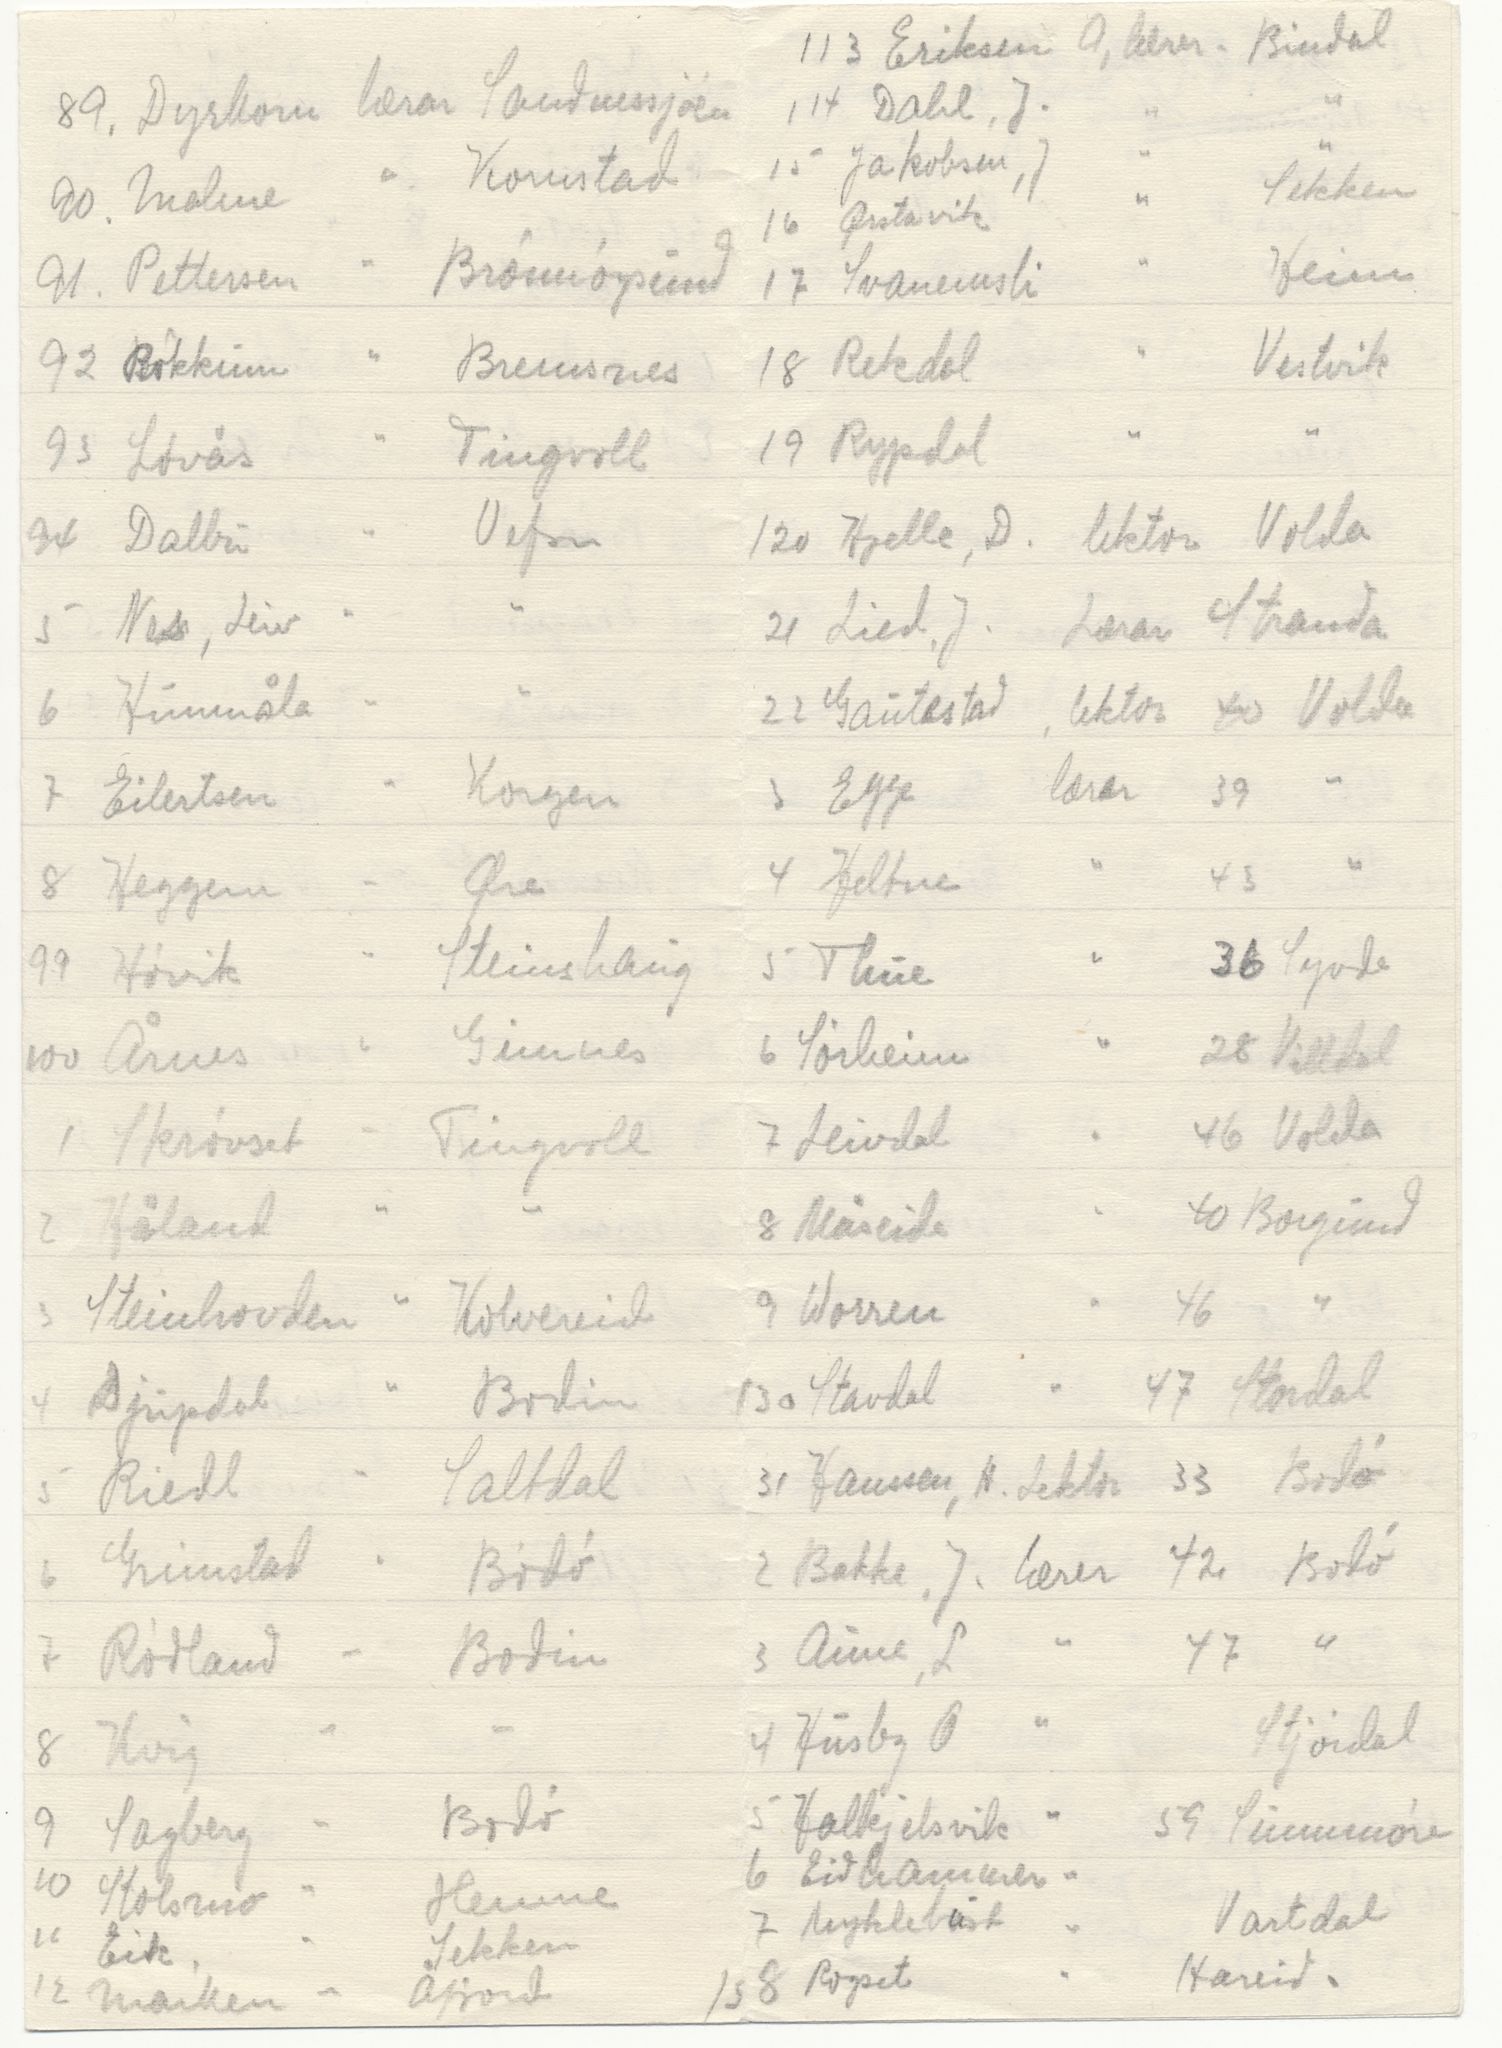 89. Dyrkorn lærar Sandnessjöen
90. Malme " Kornstad
91. Pettersen " Brönnöysund
92 Rökkum " Bremsnes
93 Lövås " Tingvoll
94 Dalbu " Vefsn
5 Nes, Leiv " "
6 Hummåla " "
7 Eilertsen " Korgen
8 Heggem " Øre
99 Hövik " Steinshaug
100 Årnes " Gimnes
1 Skrövset " Tingvoll
2 Håland " "
3 Steinhovden " Kolvereid
4 Djupdal " Bodin
5 Riedl " Saltdal
6 Grimstad " Bodö
7 Rödland " Bodin
8 Kvig " "
9 Sagberg " Bodö
10 Stolsmo " Hemne
11 Eik. " Sekken
12 Marken " Åfjord
113 Eriksen A, lærer. Bindal
114 Dahl, J. " "
15 Jakobsen, J " "
16 Ørstavik " Sekken
17 Svanemsli " Heim
18 Rekdal " Vestvik
19 Rypdal " "
120 Hjelle, D. lektor Volda
21 Lied, J. Lærar Stranda
22 Gautestad, lektor 40 Volda
3 Egge lærer 39 "
4 Heltne " 43 "
5 Thue " 36 Syvde
6 Sörheim " 28 Valldal
7 Leivdal " 46 Volda
8 Måseide " 40 Borgund
9 Worren " 46 "
130 Stavdal " 47 Stordal
31 Hanssen, H. Lektor 33 Bodö
2 Bakke, J. lærer 42 Bodö
3 Aune, L " 47 "
4 Husby P " Stjördal
5 Halkjelsvik " 59 Sunnmöre
6 Eidhammer "
7 Myklebust " Vartdal
138 Rogset " Hareid.